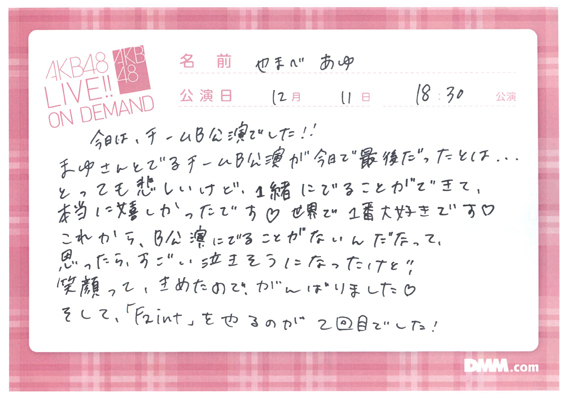 AKB48
LIVE!!
ON DEMAND
AKB
48
名 前 やまべ あゆ
公演日 12月 11日 18:30 公演
今日は、チームB公演でした!!
まゆさんとでるチームB公演が今日で最後だったとは...
とっても悲しいけど、1緒にでることができて、
本当に嬉しかったです♡ 世界で1番大好きです♡
これから、B公演にでることがないんだなって、
思ったら、すごい泣きそうになったけど、
笑顔って、きめたので、がんばりました♡
そして、「Faint」をやるのが2回目でした!
DMM.com